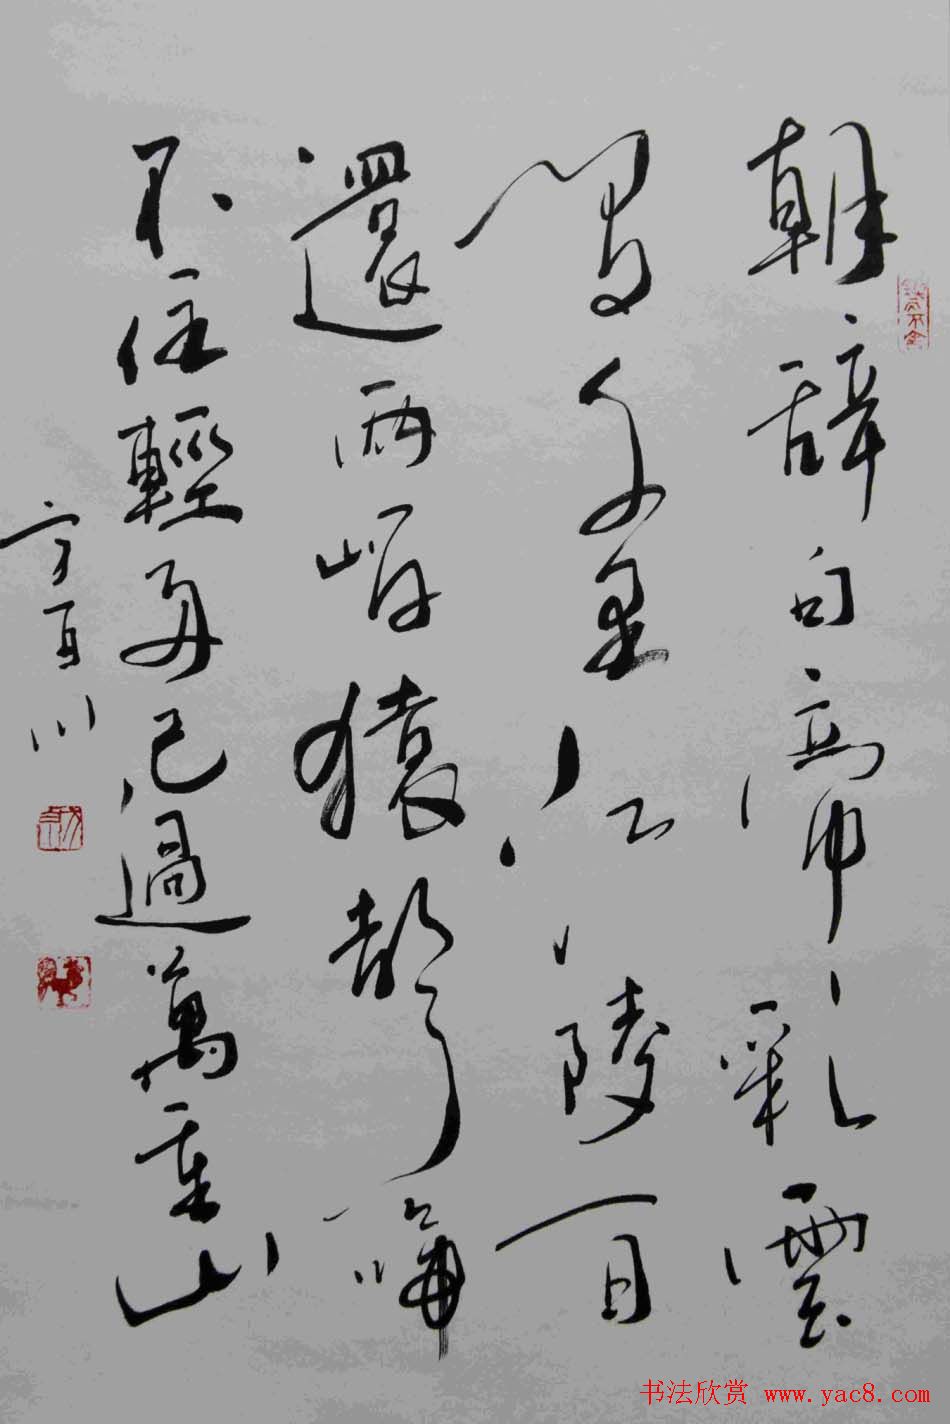 朝辭白帝彩雲
間千里江陵一日
還兩岸猿聲啼
不住輕舟已過萬重山
方百川
书法欣赏 www.yac8.com